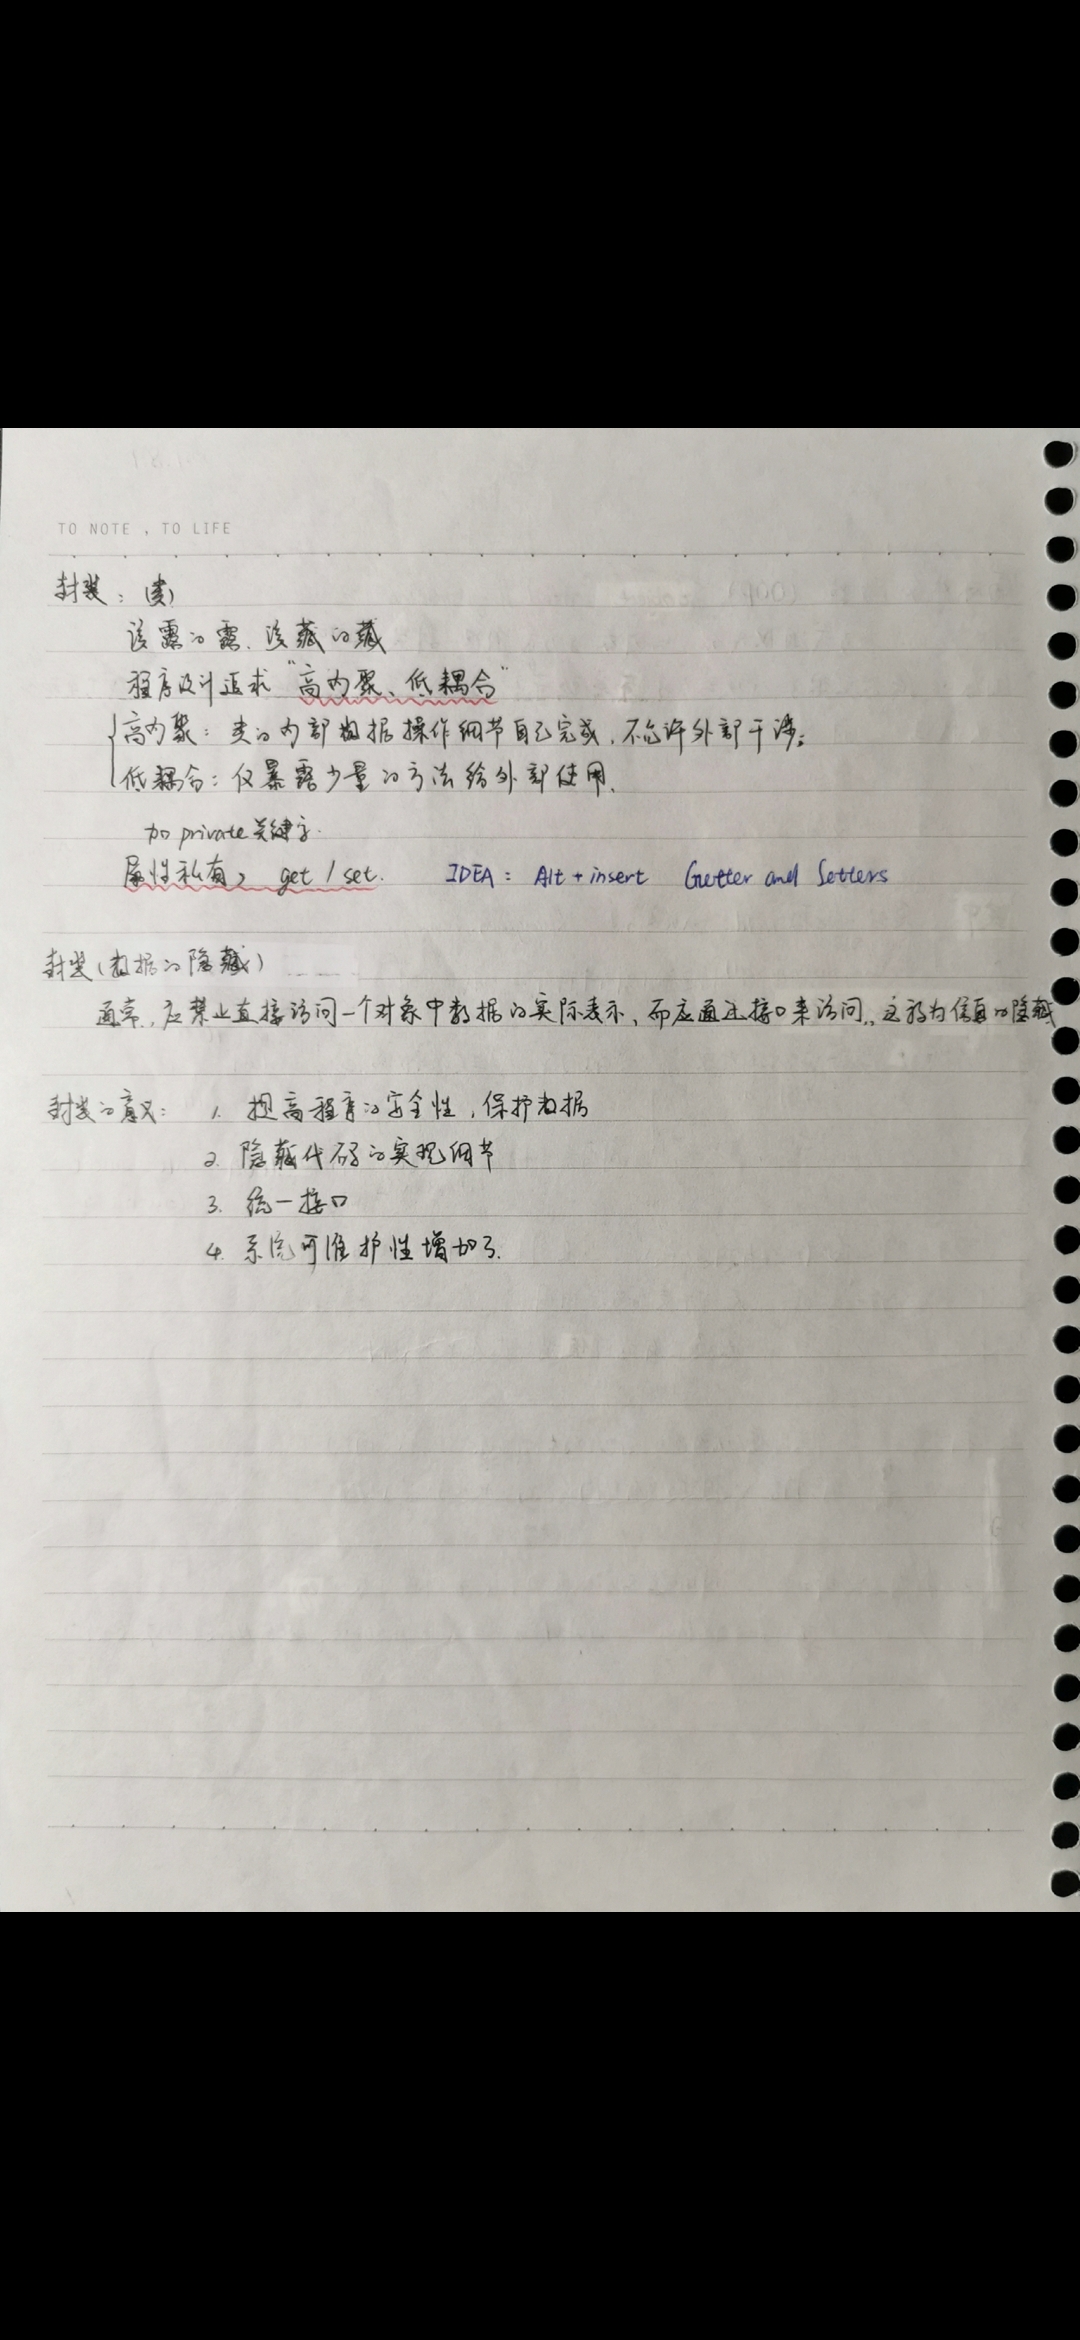 TO NOTE , TO LIFE
封装：(类)
该露的露、该藏的藏
程序设计追求 "高内聚、低耦合"
高内聚：类的内部数据操作细节自己完成，不允许外部干涉；
低耦合：仅暴露少量的方法给外部使用.
加 private 关键字.
属性私有， get / set. IDEA : Alt + insert Getter and Setters
封装（数据的隐藏）
通常，应禁止直接访问一个对象中数据的实际表示，而应通过接口来访问，这称为信息的隐藏
封装的意义： 1. 提高程序的安全性，保护数据
2. 隐藏代码的实现细节
3. 统一接口
4. 系统可维护性增加了.